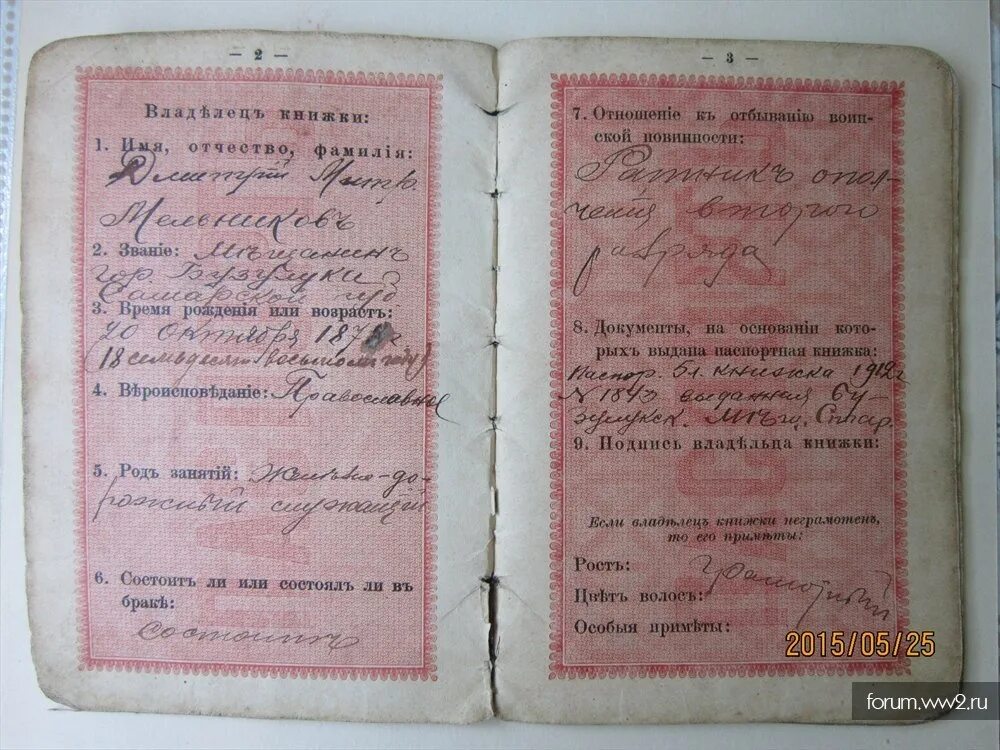 — 2 —
Владѣлецъ книжки:
1. Имя, отчество, фамилія:
Дмитрій Митр.
Мельниковъ
2. Званіе: Мѣщанинъ
гор. Бузулука
Самарской губ
3. Время рожденія или возрастъ:
20 октября 1878 г
(18 семьдесятъ восьмого году)
4. Вѣроисповѣданіе: Православное
5. Родъ занятій: Желѣзно-до-
рожный служащій
6. Состоитъ ли или состоялъ ли въ
бракѣ:
состоитъ
— 3 —
7. Отношеніе къ отбыванію воин-
ской повинности:
Ратникъ опол-
ченія второго
разряда
8. Документы, на основаніи кото-
рыхъ выдана паспортная книжка:
Паспор. бл. книжка 1912 г
№ 1843 выданная Бу-
зулукск. Мѣщ. Стар.
9. Подпись владѣльца книжки:
Если владѣлецъ книжки неграмотенъ,
то его примѣты:
Ростъ:
грамотный
Цвѣтъ волосъ:
Особыя примѣты:
2015/05/25
forum.ww2.ru